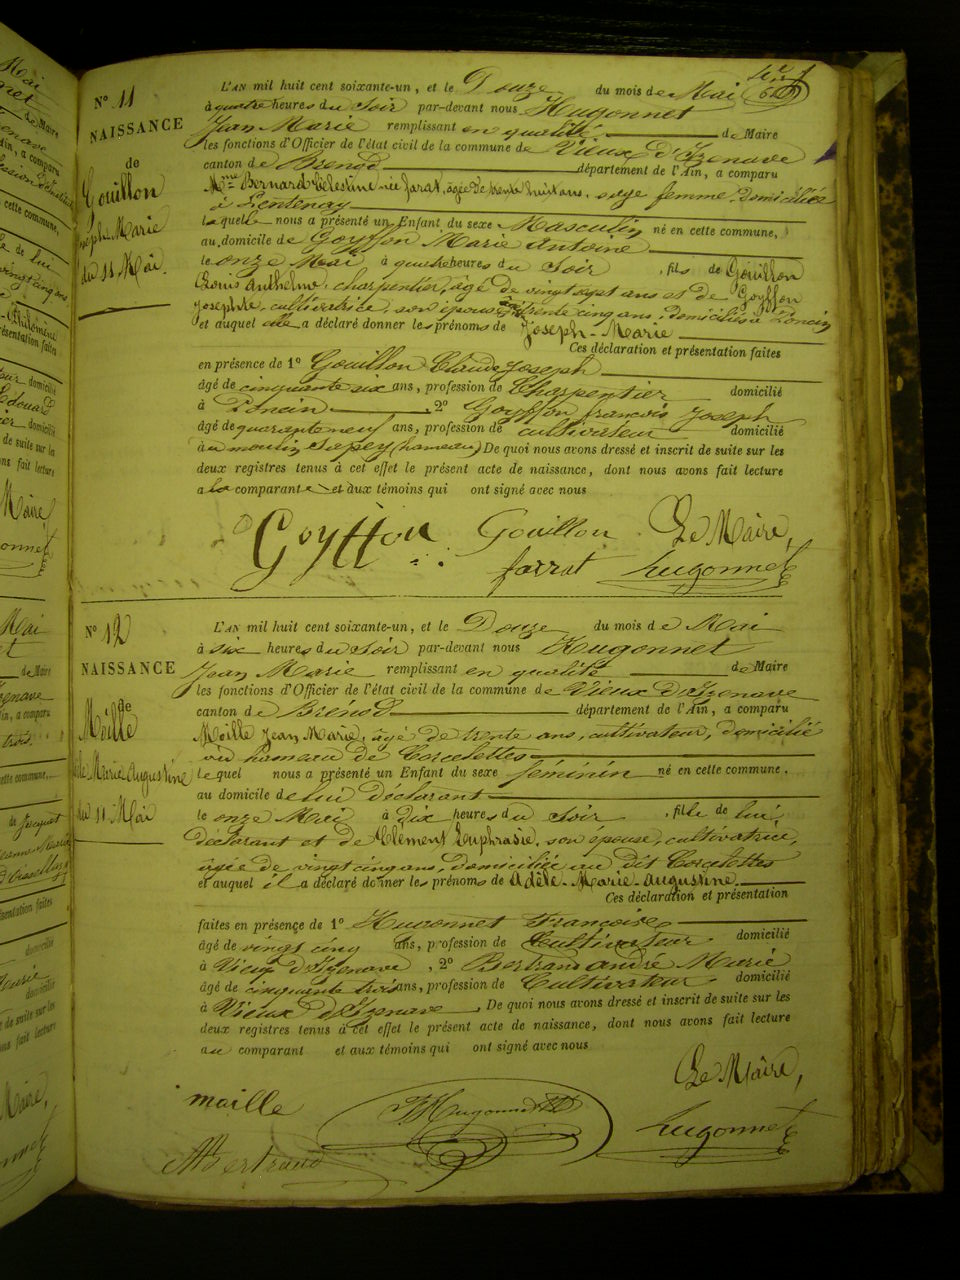 N° 11
NAISSANCE
de
Gouillon
Joseph Marie
du 11 Mai.
L'AN mil huit cent soixante-un, et le Douze du mois de Mai
à quatre heures du Soir par-devant nous Hugonnet
Jean Marie remplissant en qualité de Maire
les fonctions d'Officier de l'état civil de la commune de Vieux d'Izenave
canton de Brenod département de l'Ain, a comparu
Mme Bernard Célestine née farat, âgée de trente huit ans, sage femme, Domiciliée
à Lentenay
laquelle nous a présenté un Enfant du sexe Masculin né en cette commune,
au domicile de Goyffon Marie Antoine
le onze Mai à quatre heures du Soir, fils de Gouillon
Louis Anthelme, charpentier, âgé de vingt sept ans et de Goyffon
Josephte, cultivatrice, son épouse âgée trente cinq ans, domiciliés à Poncin
et auquel elle a déclaré donner les prénoms de Joseph-Marie
Ces déclaration et présentation faites
en présence de 1° Gouillon Claude Joseph
âgé de cinquante six ans, profession de Charpentier domicilié
à Poncin, 2° Goyffon francois Joseph
âgé de quarante neuf ans, profession de cultivateur domicilié
au moulin Sapey (hameau) De quoi nous avons dressé et inscrit de suite sur les
deux registres tenus à cet effet le présent acte de naissance, dont nous avons fait lecture
a la comparante et aux témoins qui ont signé avec nous
Goyffon Gouillon Le Maire,
farrat hugonnet
N° 12
NAISSANCE
de
Moille
Adèle Marie Augustine
du 11 Mai
L'AN mil huit cent soixante-un, et le Douze du mois de Mai
à six heures du Soir par-devant nous Hugonnet
Jean Marie remplissant en qualité de Maire
les fonctions d'Officier de l'état civil de la commune de Vieux d'Izenave
canton de Brénod département de l'Ain, a comparu
Moille Jean Marie, âgé de trente ans, cultivateur, domicilié
au hameau de Corcelettes
lequel nous a présenté un Enfant du sexe féminin né en cette commune,
au domicile de lui déclarant
le onze Mai à Dix heures du Soir, fille de lui,
déclarant et de Clément Euphrasie, son épouse, cultivatrice,
âgée de vingt cinq ans, domiciliée au dit Corcelettes
et auquel il a déclaré donner les prénoms de Adèle-Marie-Augustine
Ces déclaration et présentation
faites en présence de 1° Hugonnet Françoise
âgé de vingt cinq ans, profession de Cultivateur domicilié
à Vieux d'Izenave, 2° Bertrand André Marie
âgé de cinquante trois ans, profession de Cultivateur domicilié
à Vieux d'Izenave, De quoi nous avons dressé et inscrit de suite sur les
deux registres tenus à cet effet le présent acte de naissance, dont nous avons fait lecture
au comparant et aux témoins qui ont signé avec nous
Le Maire,
moille Hugonnet hugonnet
Bertrand